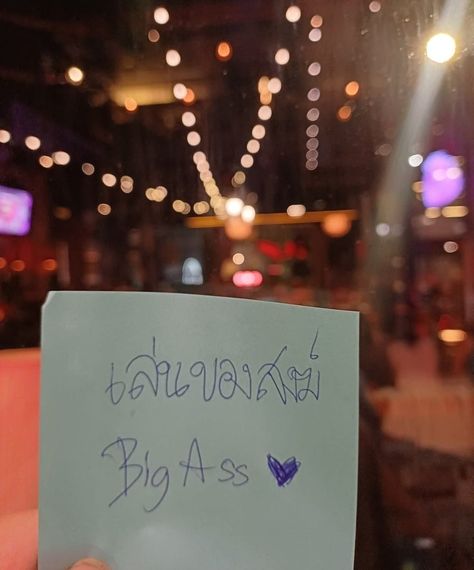 เล่นของสงฆ์
Big Ass